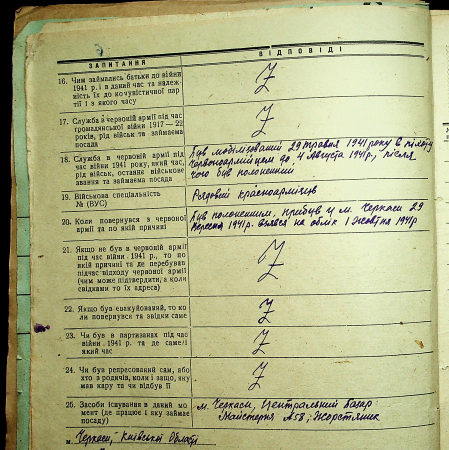 ЗАПИТАННЯ
ВІДПОВІДІ
16. Чим займались батьки до війни
1941 р. і в даний час та належ-
ність їх до комуністичної пар-
тії і з якого часу
Z
17. Служба в червоній армії під час
громадянської війни 1917—22
років, рід військ та займаєма
посада
Z
18. Служба в червоній армії під
час війни 1941 року, який час,
рід військ, останнє військове
звання та займаєма посада
Був мобілізований 29 травня 1941 року в піхоту
Червоноармійцем до 4 Августа 1941р., після
чого був полоненим
19. Військова спеціальність
№ (ВУС)
Рядовий красноармієць
20. Коли повернувся з червоної
армії та по якій причині
Був полоненим, прибув у м. Черкаси 29
вересня 1941р. взявся на облік 1 жовтня 1941р
21. Якщо не був в червоній армії
під час війни 1941 р., то по
якій причині та де перебував
підчас відходу червоної армії
(чим може підтвердити, а коли
свідками то їх адреса)
Z
22. Якщо був евакуйований, то ко-
ли повернувся та звідки саме
Z
23. Чи був в партизанах під час
війни 1941 р. та де саме і
який час
Z
24. Чи був репресований сам, або
хто з родичів, коли і защо, яку
мав кару та чи відбув її
Z
25. Засоби існування в даний мо-
мент (де працює і яку займає
посаду)
м. Черкаси, Центральний базар
Майстерня №58, Жорстяник
м. Черкаси, Київської Області